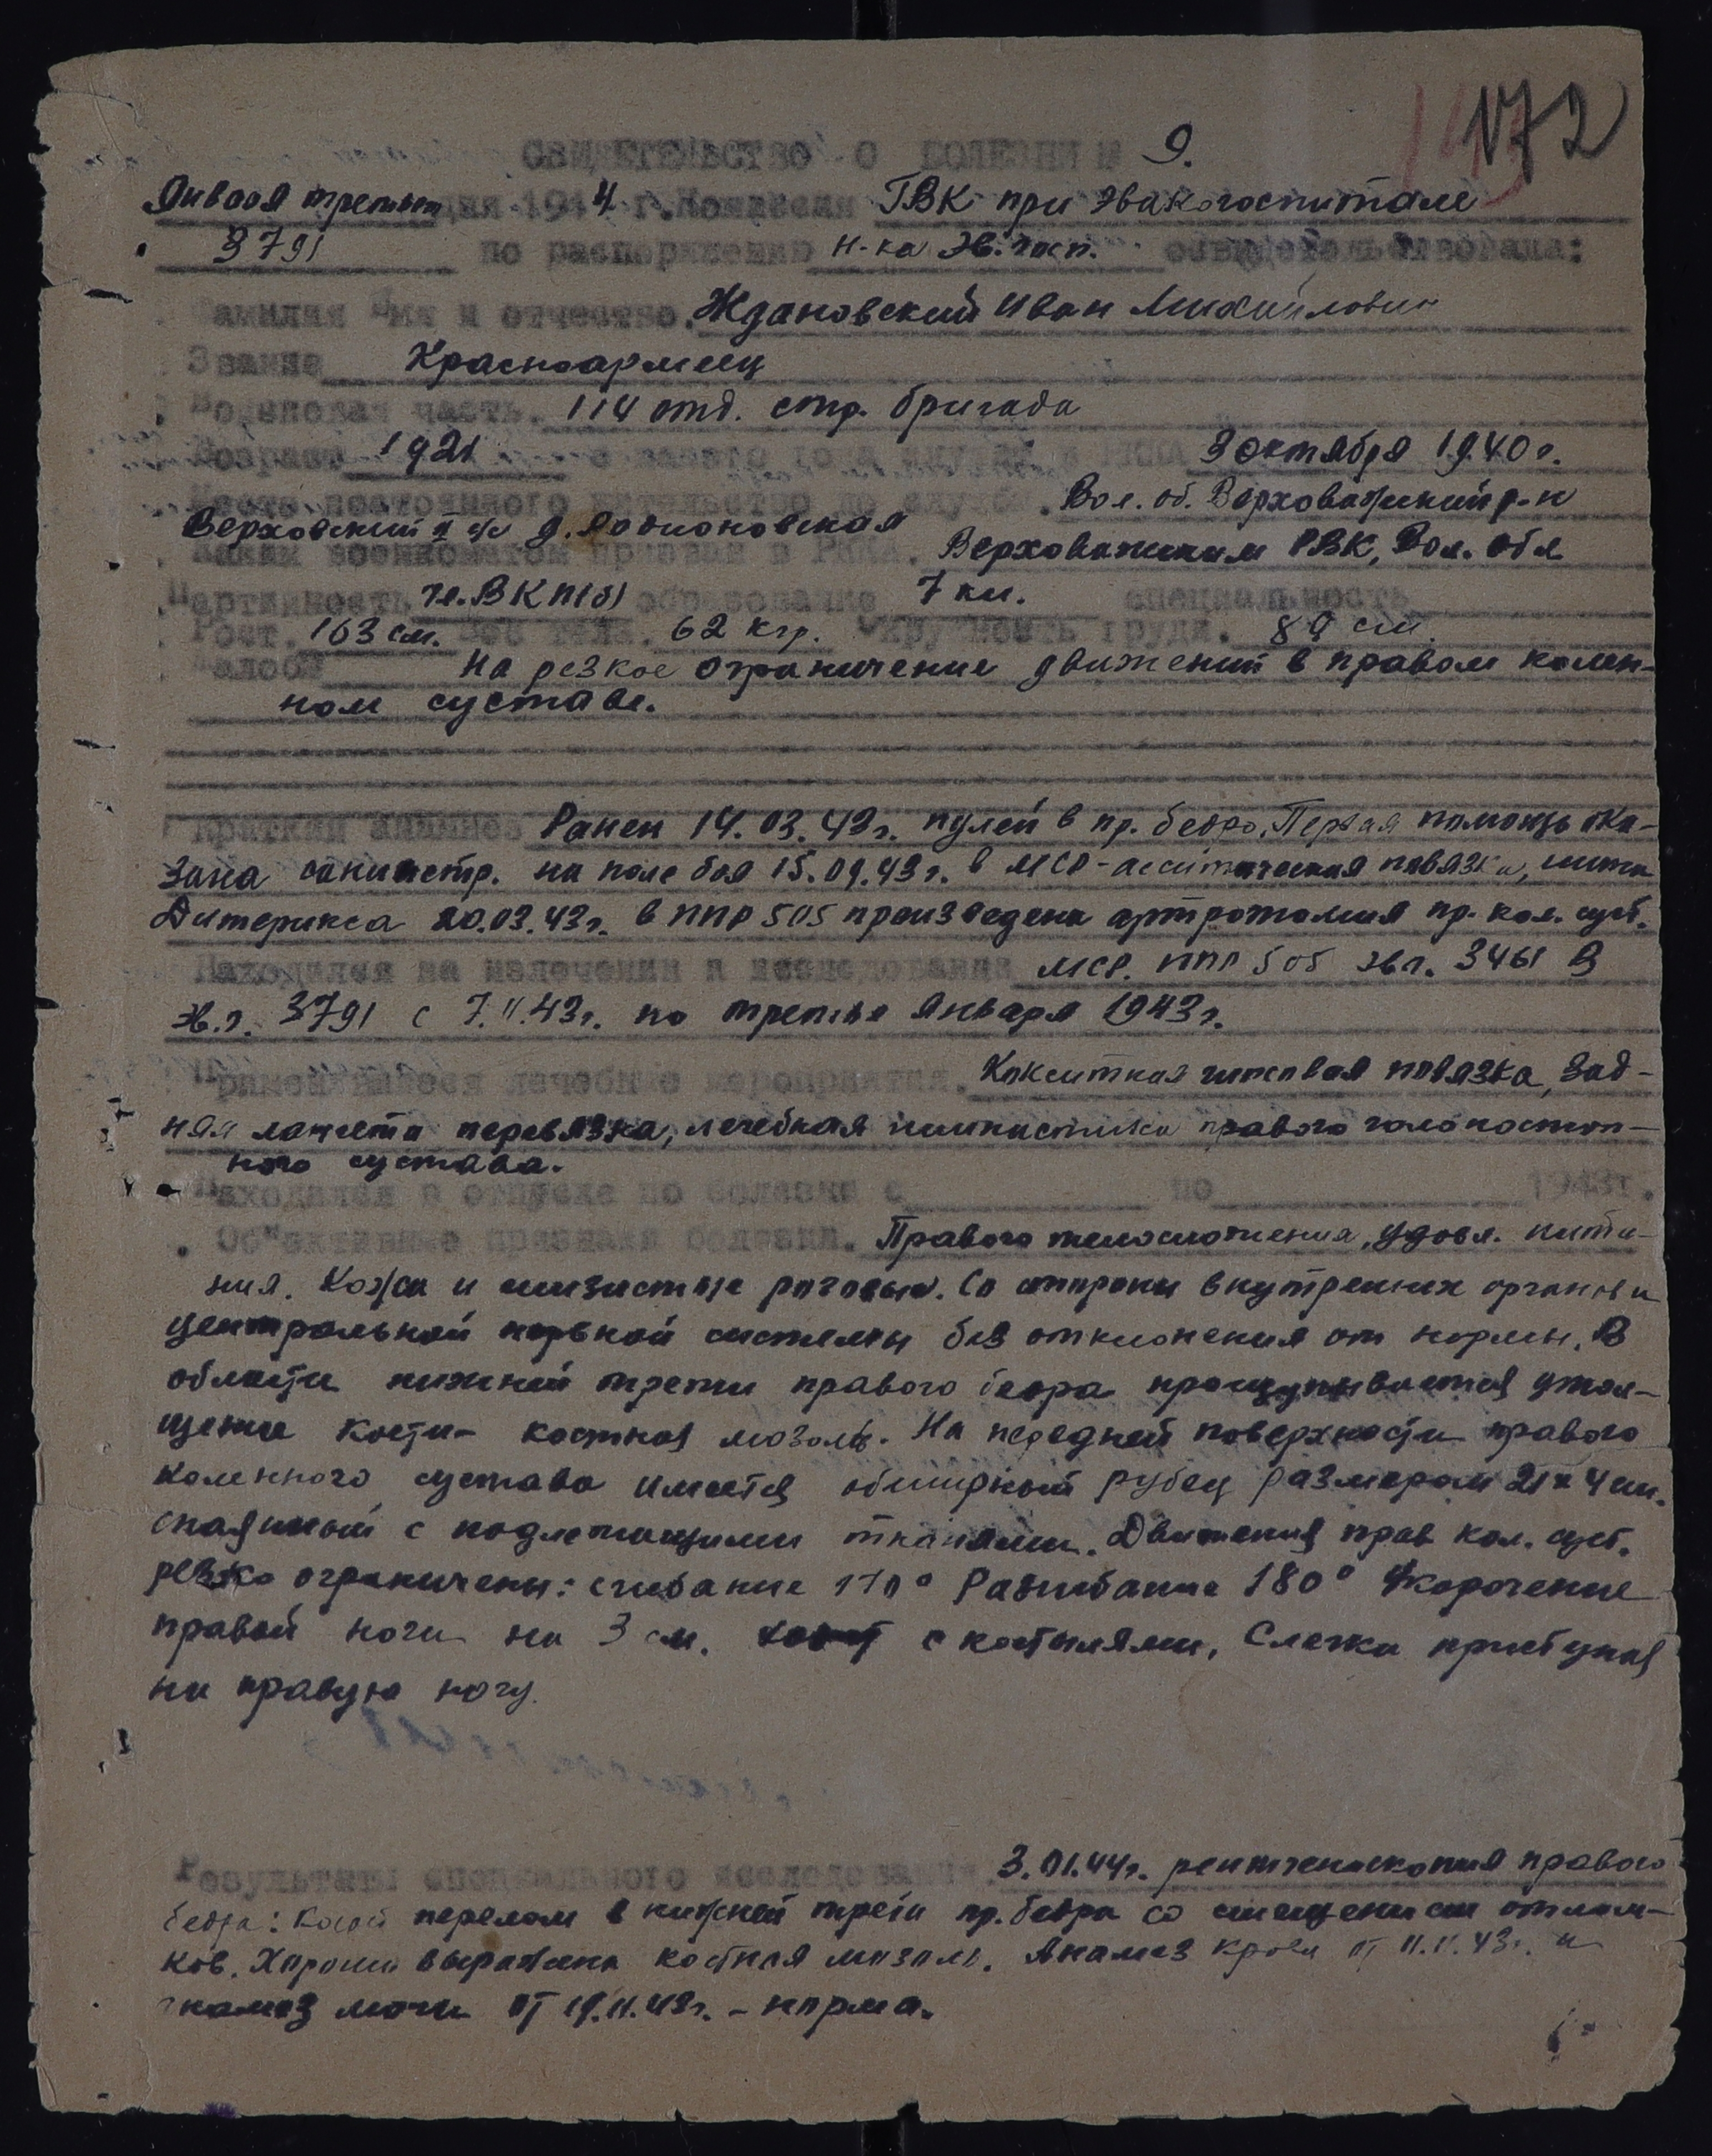 172
СВИДЕТЕЛЬСТВО О БОЛЕЗНИ № 9.
Января третьего дня 1944 г. Комиссия ГВК при эвакогоспитале
3791 по распоряжению н-ка эв. госп. освидетельствовала:
Фамилия Имя и отчество. Ждановский Иван Михайлович
Звание Красноармеец
Войсковая часть. 114 отд. стр. бригада
Возраст 1921 с какого года служит в РККА 3 октября 1940 г.
Место постоянного жительство до службы. Вол. об. Верховажский р-н
Верховский с/с д.
Каким военкоматом призван в РККА. Верховажским РВК, Вол. обл
Партийность чл. ВКП(б) образование 7 кл. специальность
Рост. 163 см. Вес тела. 62 кгр. Окружность груди. 89 см.
Жалобы На резкое ограничение движений в правом колен-
ном суставе.
Краткий анамнез Ранен 14.03.43г. пулей в пр. бедро. Первая помощь ока-
зана санинстр. на поле боя 15.09.43г. в МСР - асептическая повязка, шина
Дитерихса 20.03.43г. в ППГ 505 произведена артротомия пр. кол. суст.
Находился на излечении и исследовании МСР. ППГ 505 эвг. 3461 В
эв.г. 3791 с 7.11.43г. по третье января 1943г.
Применявшиеся лечебные мероприятия. Кокситная гипсовая повязка, зад-
няя лангета перевязка, лечебная гимнастика правого голопостоп-
ного сустава.
Находился в отпуске по болезни с по 1943г.
Об"ективные признаки болезни. Правого телосложения, удовл. пита-
ния. Кожа и слизистые розовые. Со стороны внутренних органов и
центральной нервной системы без отклонения от нормы. В
области нижней трети правого бедра прощупывается утол-
щение кости - костная мозоль. На передней поверхности правого
коленного сустава имеется обширный рубец размером 21 х 4 см.
спаянный с подлежащими тканями. Движения прав кол. суст.
резко ограничены: сгибание 170° Разгибание 180° Укорочение
правой ноги на 3 см. с костылями, Слегка приступая
на правую ногу.
Результаты специального исследования. 3.01.44г. рентгеноскопия правого
бедра: Косой перелом в нижней трети пр. бедра со смещением отлом-
ков. Хорошо выражена костная мозоль. Анализ крови от 11.11.43г. и
анализ мочи от 19.11.43г. - норма.